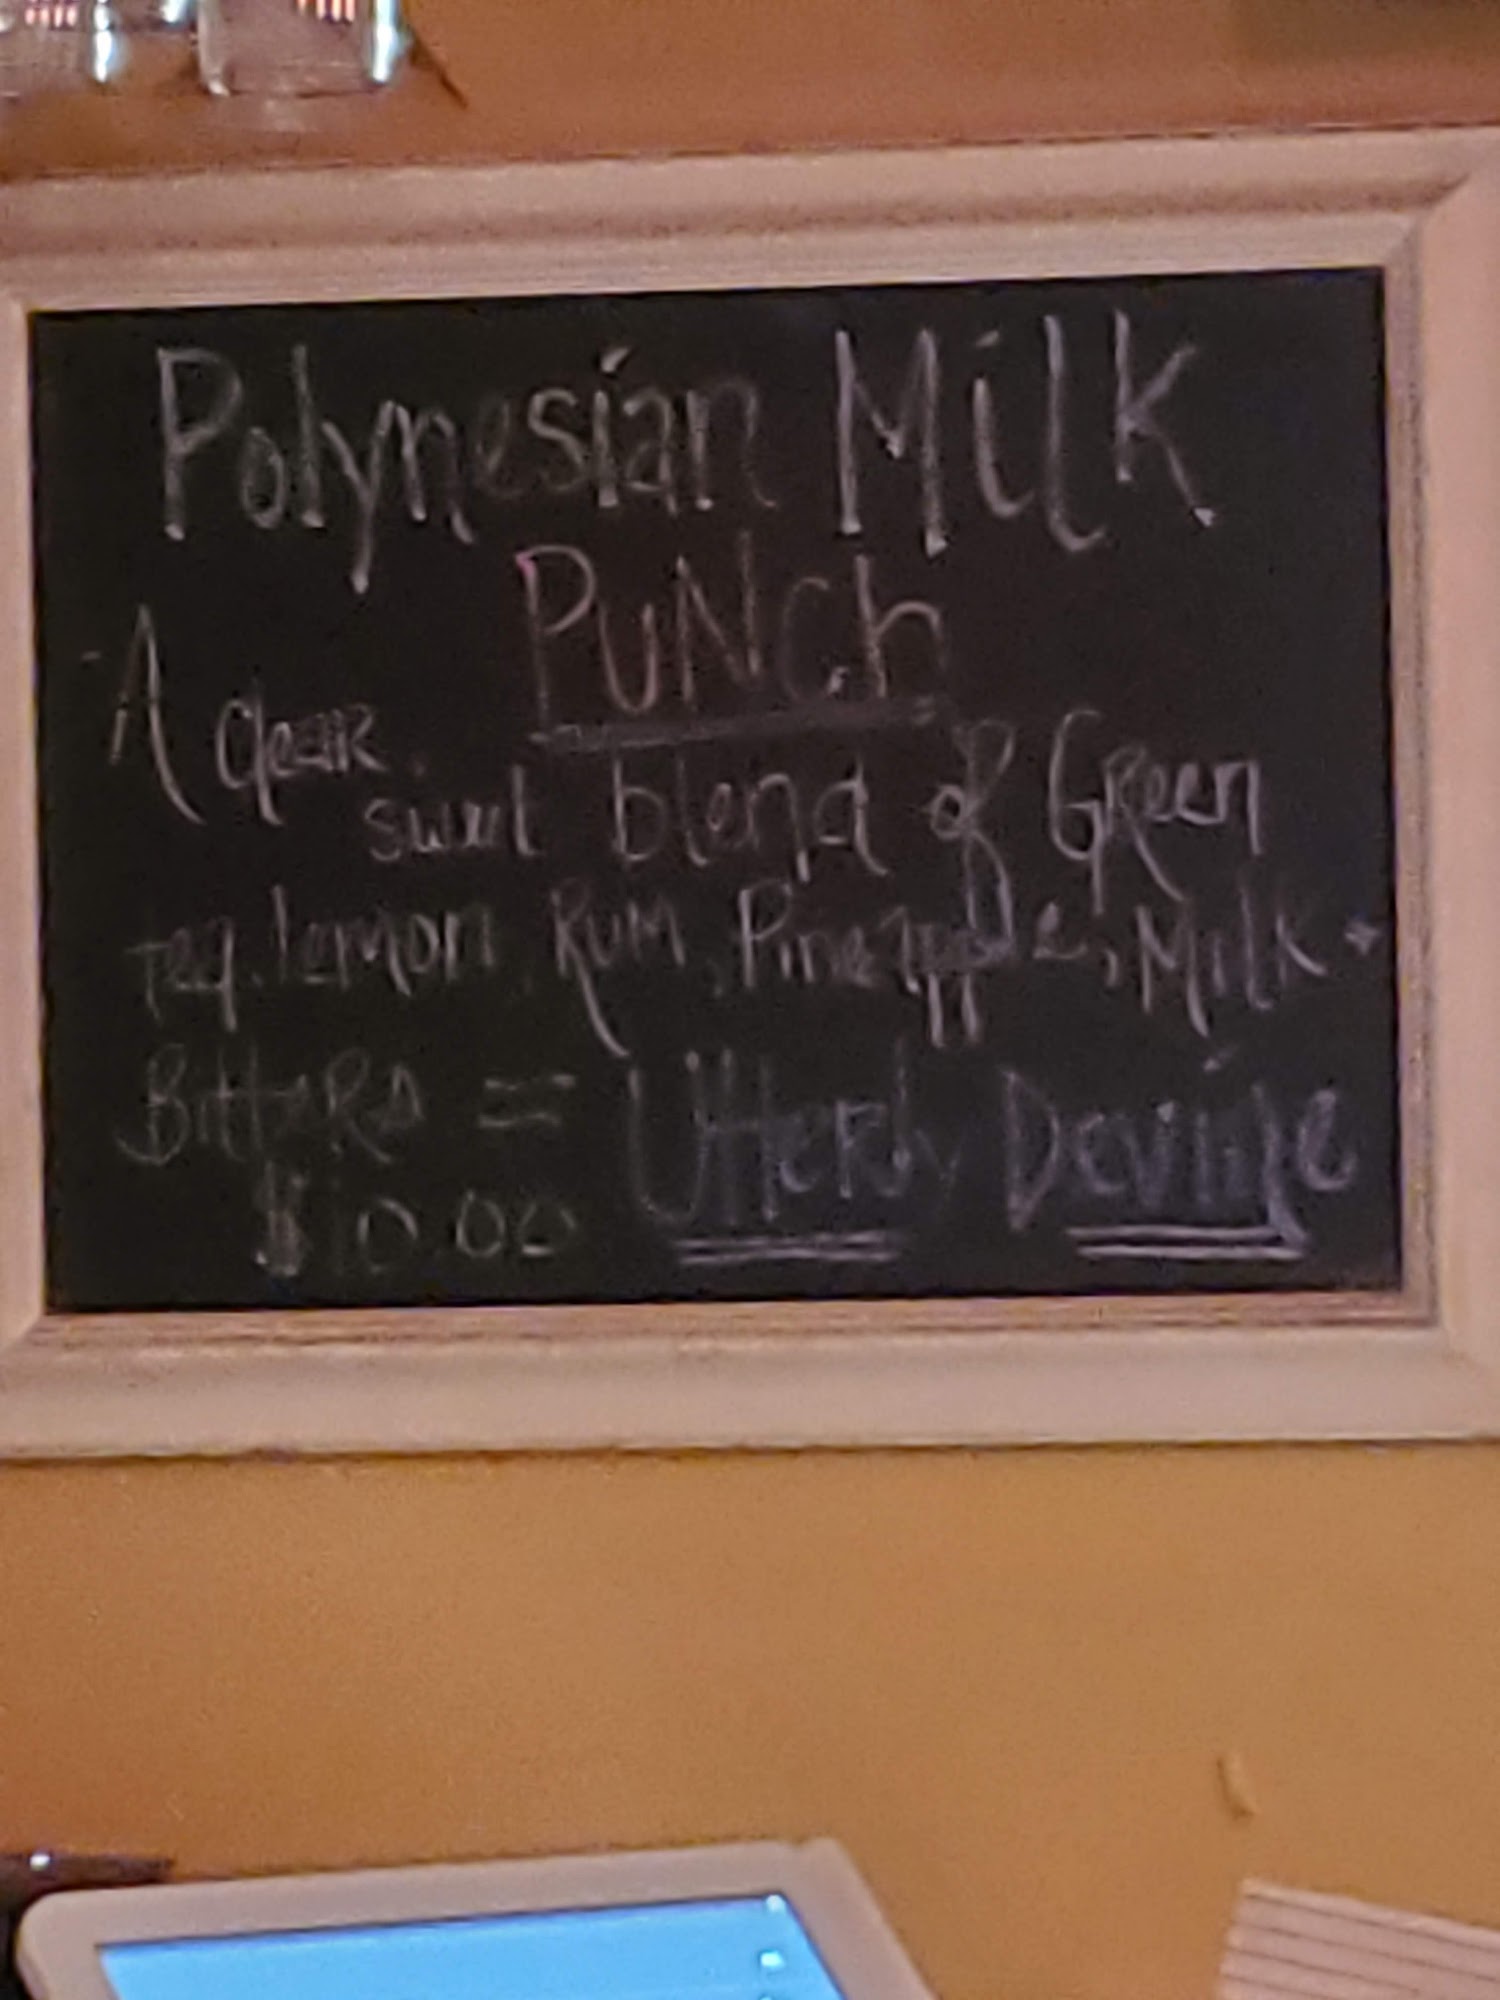 Polynesian Milk
PuNch
A clear
sweet blend of GReen
Tea, lemon, Rum, Pineapple, Milk +
BitteRs = Utterly Devine
$10.00